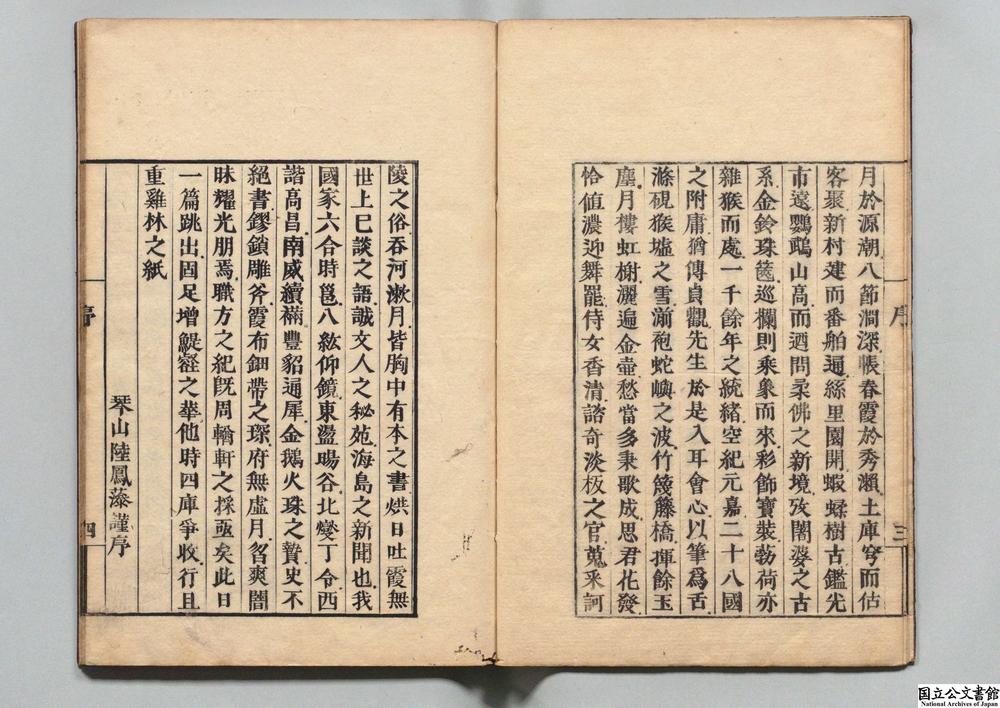 月於源潮八節澗深帳春霞於秀瀨土庫穹而估
客聚新村建而番舶通絲里園開蝦蟝樹古鑑光
市遠鸚鵡山高而迺問柔佛之新境攷闍婆之古
系金鈴珠簉巡欄則乘象而來彩飾寶裝勃荷亦
雜猴而處一千餘年之統緒空紀元嘉二十八國
之附庸猶傳貞觀先生於是入耳會心以筆爲舌
滌硯猴墟之雪湔袍蛇嶼之波竹篾籐橋揮餘玉
塵月摟虹榭灑遍金壷愁當多秉歌成思君花發
恰値濃迎舞罷侍女香清諮奇淡板之官蒐采訶
序
三
陵之俗吞河漱月皆胸中有本之書烘日吐霞無
世上已談之語誠文人之秘苑海島之新聞也我
國家六合時邕八紘仰鏡東盪暘谷北燮丁令西
諧高昌南威續樠豐貂通犀金鵝火珠之贄史不
絕書鏐鎖雕斧霞布鈿帶之琛府無虛月曶爽闇
昧耀光朋焉職方之紀旣周輶軒之採亟矣此日
一篇跳出固足增鯷壑之華他時四庫爭收行且
重雞林之紙
琴山陸鳳藻謹序
序
四
国立公文書館
National Archives of Japan